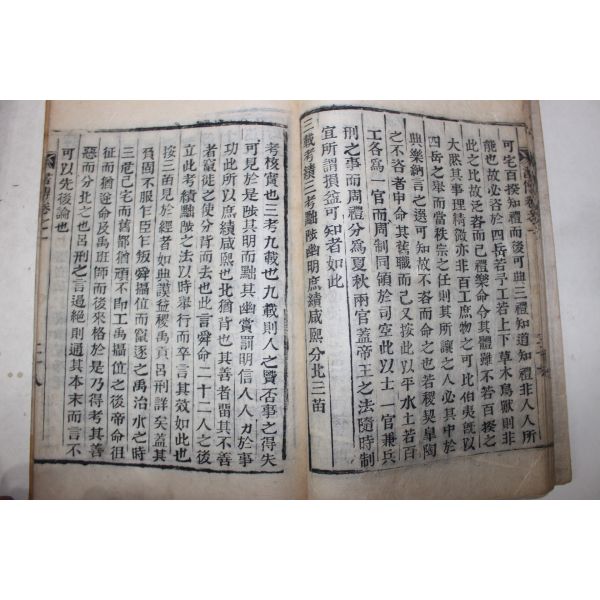 可宅百揆知禮而後可典三禮知道知禮非人人所
能也故必咨於四岳若予工若上下草木鳥獸則非
此之比故泛咨而已禮樂命令其體雖不若百揆之
大然其事理精微亦非百工庶物之可比伯夷旣以
四岳之舉而當秩宗之任則其所讓之人必其中於
典樂納言之選可知故不咨而命之也若稷契皐陶
之不咨者申命其舊職而已又按此以平水土若百
工各爲一官而周制同領於司空此以士一官兼兵
刑之事而周禮分爲夏秋兩官蓋帝王之法隨時制
宜所謂損益可知者如此
三載考績三考黜陟幽明庶績咸熙分北三苗
考核實也三考九載也九載則人之賢否事之得失
可見於是陟其明而黜其幽賞罰明信人人力於事
功此所以庶績咸熙也北猶背也其善者留其不善
者竄徙之使分背而去也此言舜命二十二人之後
立此考績黜陟之法以時舉行而卒言其效如此也
按三苗見於經者如典謨益稷禹貢呂刑詳矣蓋其
負固不服乍臣乍叛舜攝位而竄逐之禹治水之時
三危已宅而舊都猶頑不卽工禹攝位之後帝命徂
征而猶逆命及禹班師而後來格於是乃得考其善
惡而分北之也呂刑之言遏絶則通其本末而言不
可以先後論也